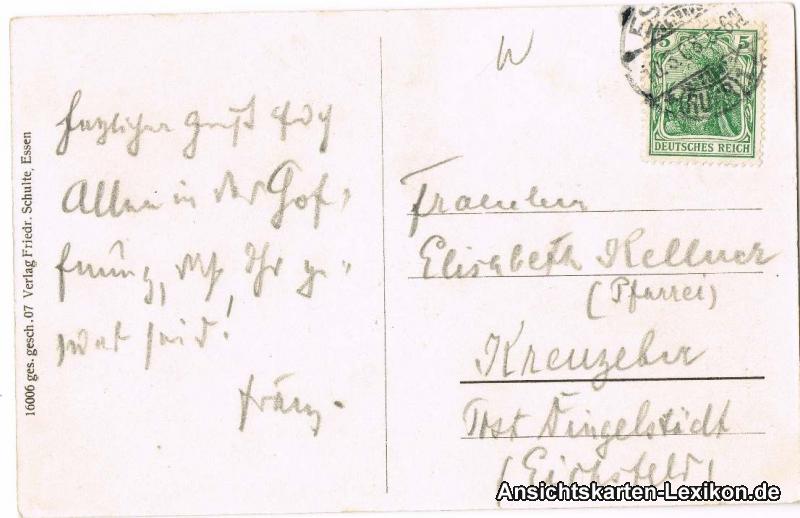 16006 ges. gesch. 07 Verlag Friedr. Schulte, Essen
Herzlicher Gruß Euch
Allen in der Hof-
fnung, daß Ihr ge-
seid!
Franz.
W
5 5
DEUTSCHES REICH
Fräulein
Elisabeth Kellner
(Pfarrei)
Kreuzeber
Post Dingelstädt
(Eichsfeld)
Ansichtskarten-Lexikon.de